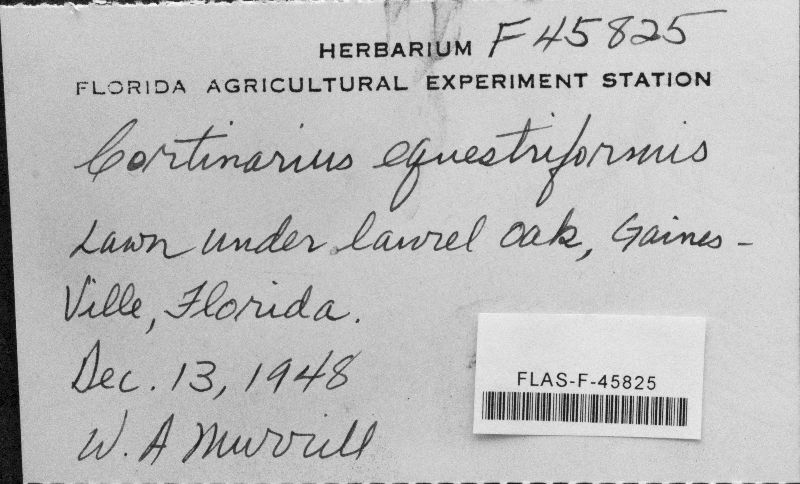 HERBARIUM F45825
FLORIDA AGRICULTURAL EXPERIMENT STATION
Cortinarius equestriformis
Lawn under laurel oak, Gaines-
Ville, Florida.
Dec. 13, 1948
W. A Murrill
FLAS-F-45825